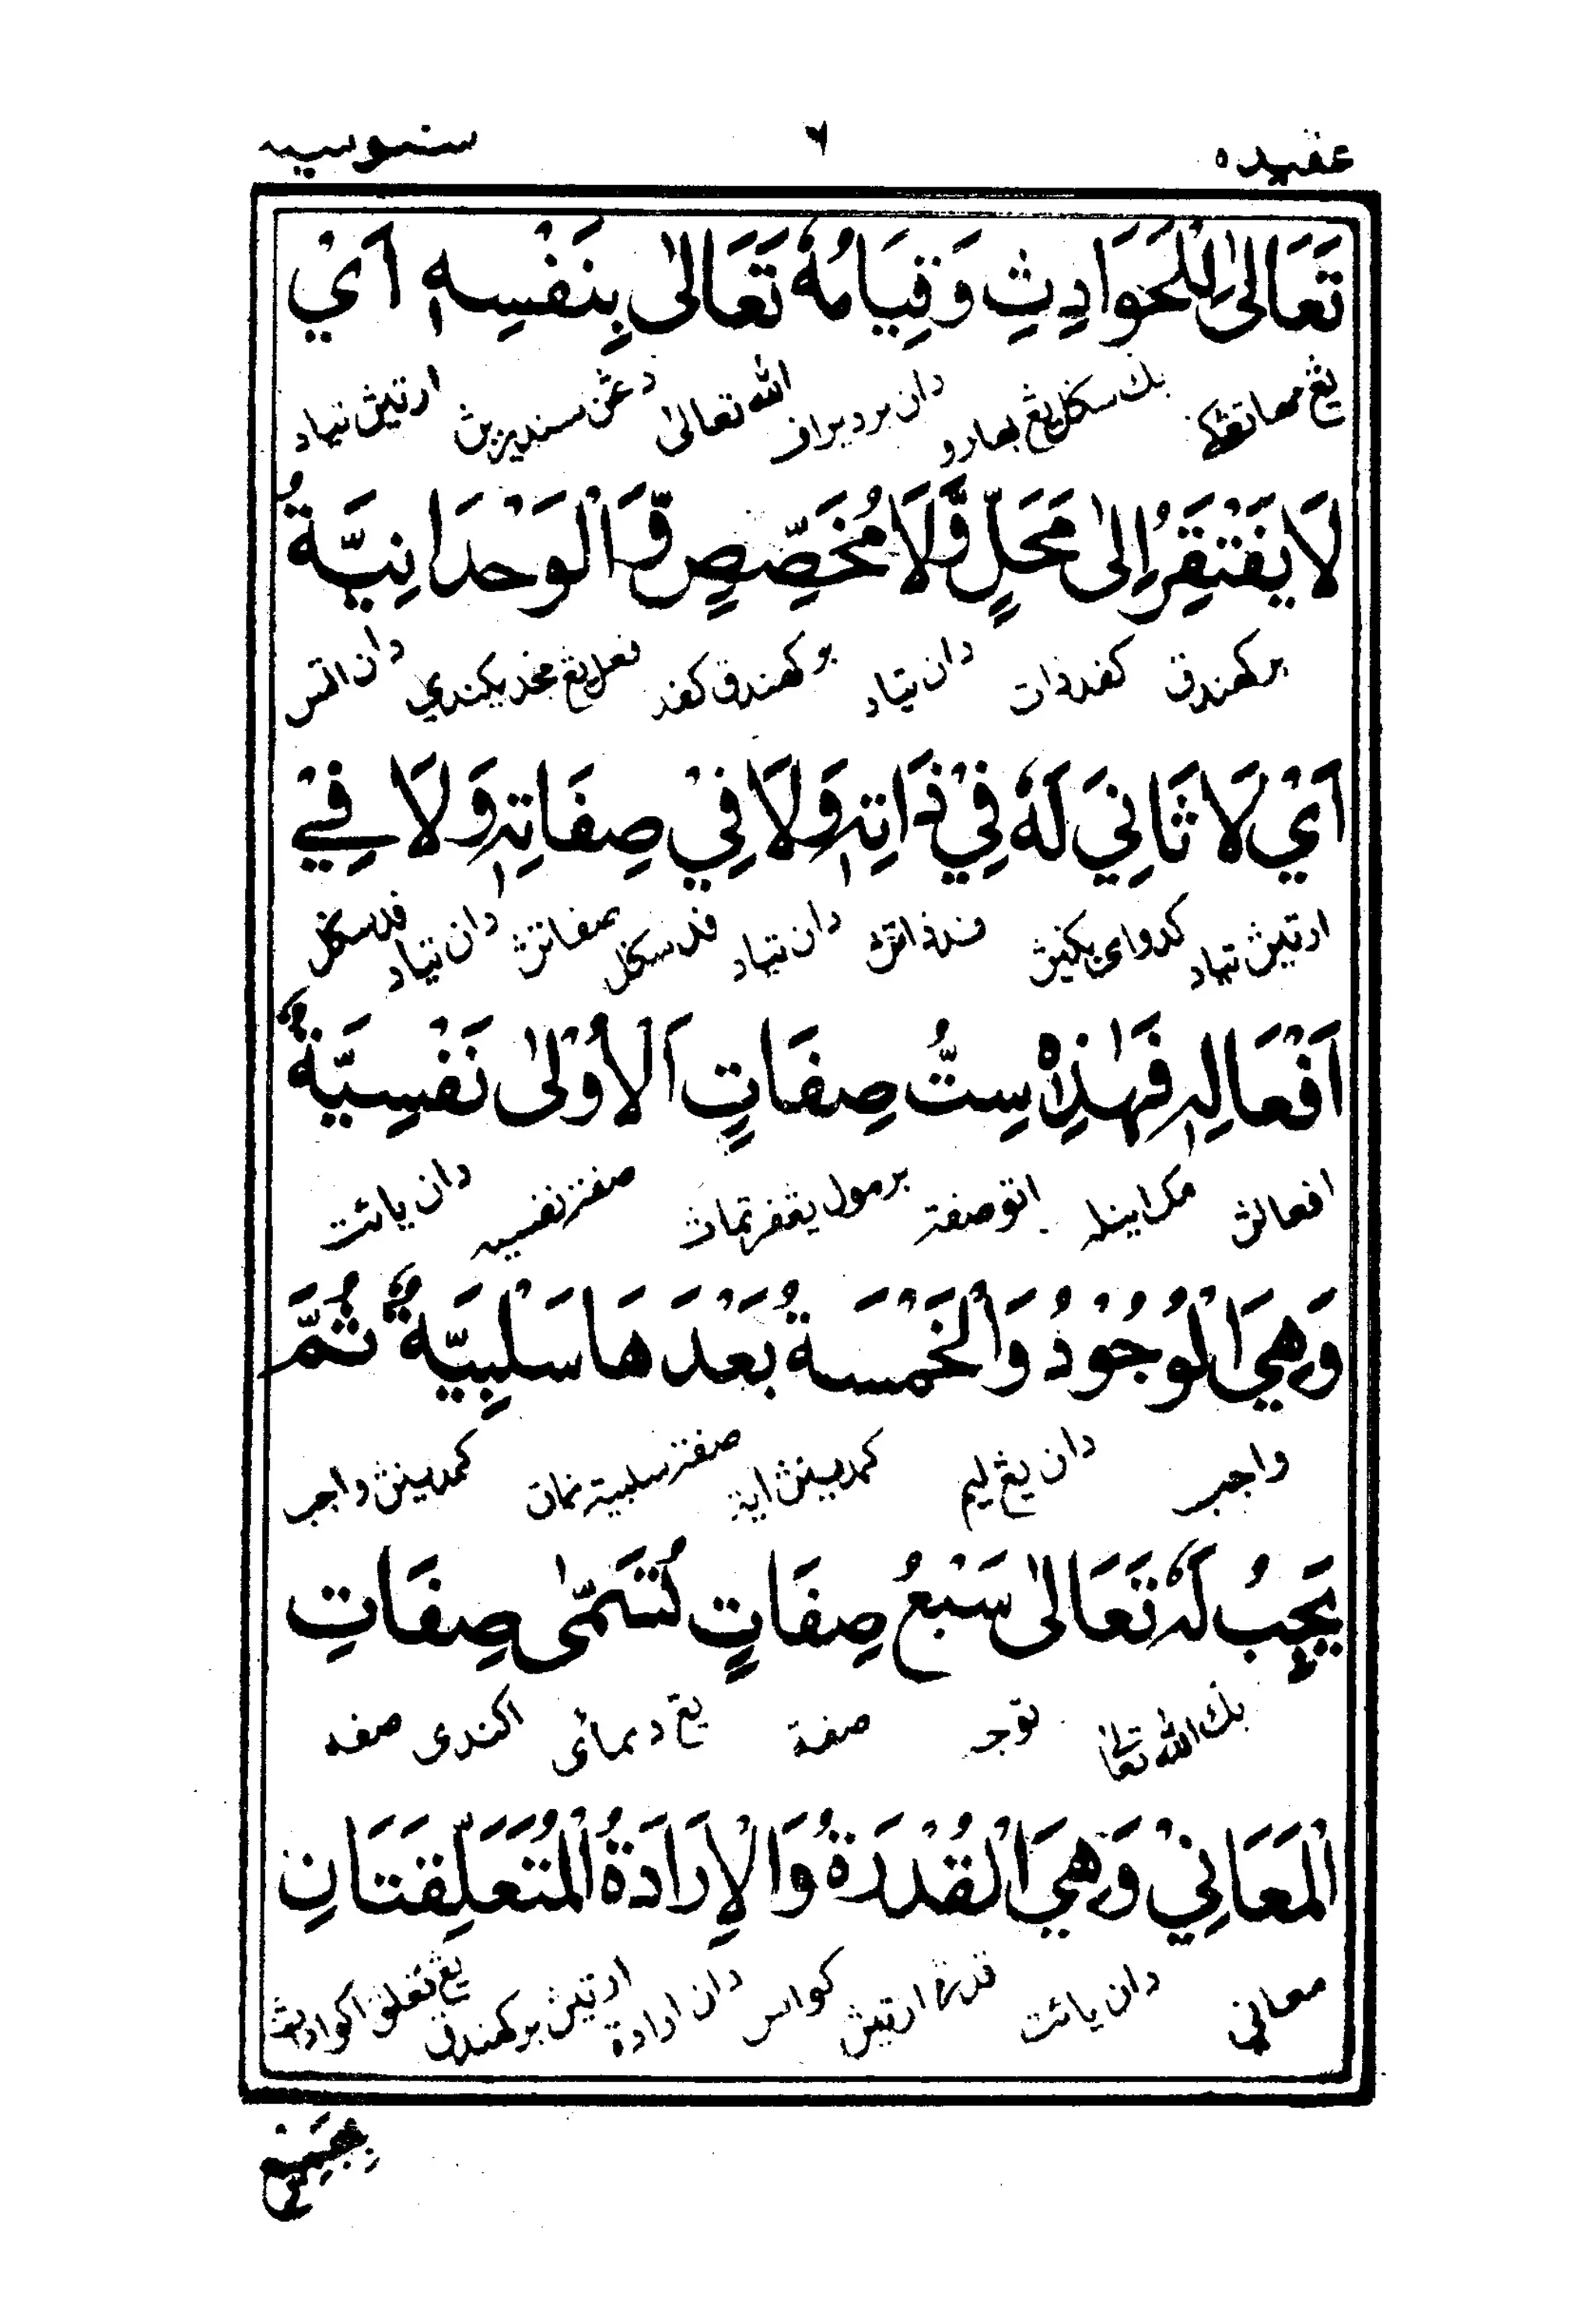 عقيده ٦ سنوسيه
تَعَالىٰ لِلْحَوَادِثِ وَقِيَامُهٗ تَعَالىٰ بِنَفْسِهٖ اَيْ
يڠ مها تڠݢي بݢ سکل يڠ بهارو دان برديراڽ الله تعالى دڠن سنديرين ارتيڽ تياد
لَا يَفْتَقِرُ اِلىٰ مَحَلٍّ وَّلَا مُخَصِّصٍ وَّالْوَحْدَانِيَّةُ
برکهندق کفد ذات دان تياد برکهندق کفد يڠ دان
اَيْ لَا ثَانِيَ لَهٗ فِيْ ذَاتِهٖ وَلَا فِيْ صِفَاتِهٖ وَلَا فِيْ
ارتيڽ تياد کدواي بݢيڽ فد ذاتڽ دان تياد فد سکل صفاتڽ دان تياد فد سکل
اَفْعَالِهٖ فَهٰذِهٖ سِتُّ صِفَاتٍ اَلْاُوْلىٰ نَفْسِيَّةٌ
افعالڽ مک اينله اتو صفة برمول يڠ فرتمان صفة نفسيه دان يائت
وَهِيَ الْوُجُوْدُ وَالْخَمْسَةُ بَعْدَهَا سَلْبِيَّةٌ ثُمَّ
دان يڠ ليم کمدين صفة سلبية نمان کمدين واجب
يَجِبُ لَهٗ تَعَالىٰ سَبْعُ صِفَاتٍ تُسَمّٰى صِفَاتِ
بݢ الله تعالى توجه صفة يڠ دنمائي اکندي صفه
الْمَعَانِيْ وَهِيَ الْقُدْرَةُ وَالْاِرَادَةُ الْمُتَعَلِّقَتَانِ
معاني دان يائت قدرة ارتيڽ کواس دان ارادة ارتيڽ برکهندق يڠ تعلق
بِجَمِيْعِ